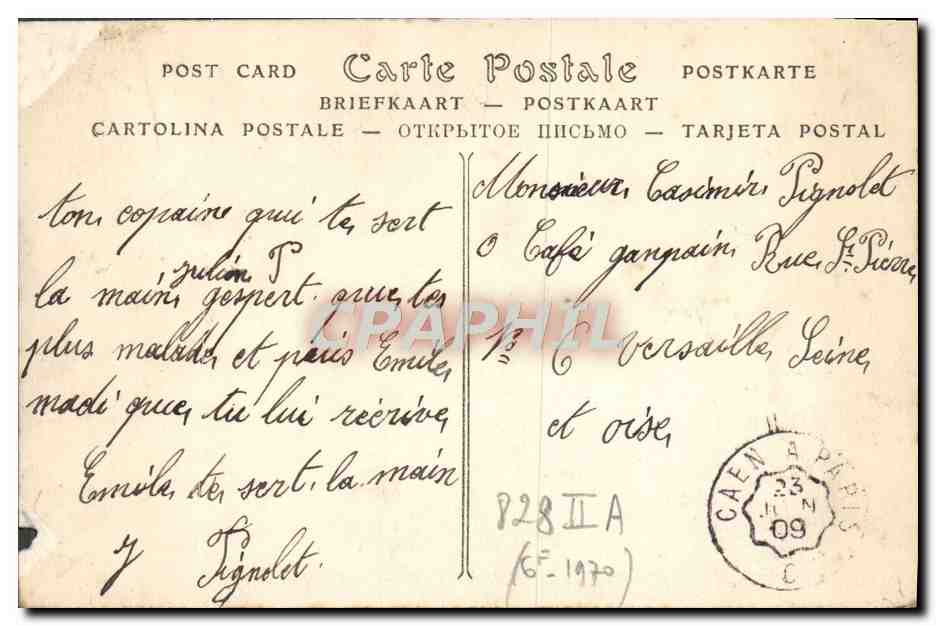 POST CARD Carte Postale POSTKARTE
BRIEFKAART — POSTKAART
CARTOLINA POSTALE — ОТКРЫТОЕ ПИСЬМО — TARJETA POSTAL
ton copaine qui te sert
julien P
la main gespert que tes
plus malade et puis Emile
madi que tu lui réérive
Emile te sert la main
J Pignolet
Monsieur Casimir Pignolet
Café ganpain Rue St Pierre
No 6 Versaille Seine
et oise
CAEN A PARIS
23
JUIN
09
C
828 II A
(6F - 1970)
CPAPHIL